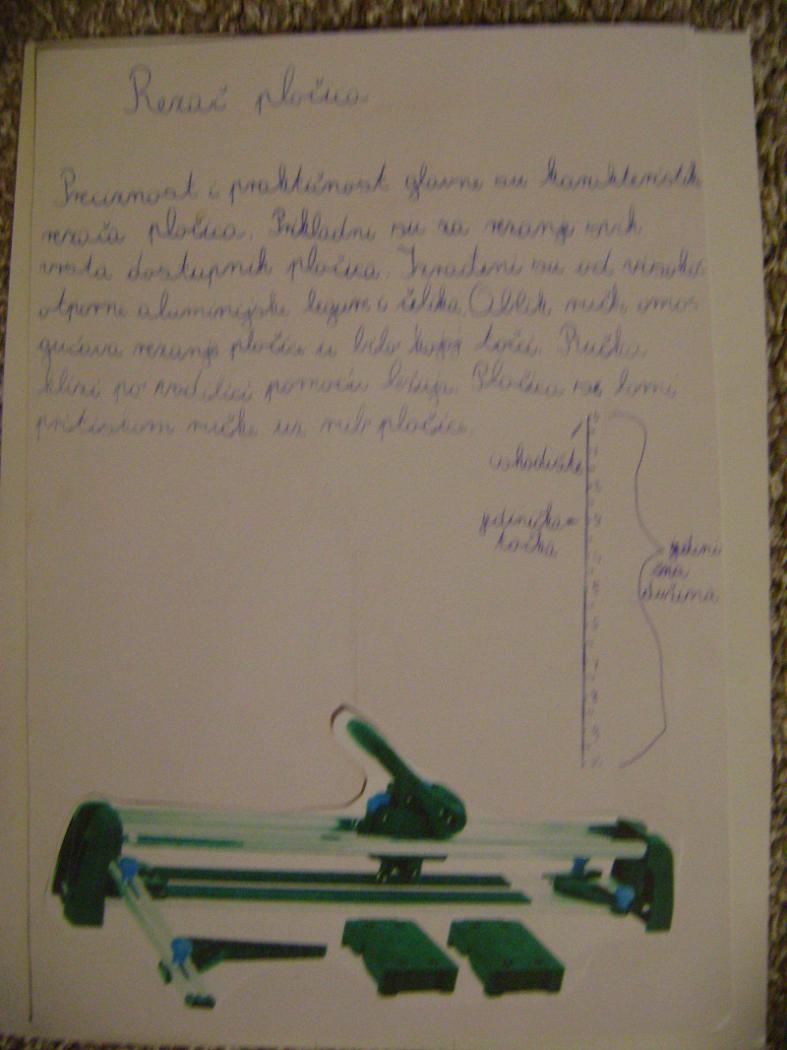 Rezač pločica
Preciznost i praktičnost glavne su karakteristik
rezača pločica. Prikladni su za rezanje svih
vrsta dostupnih pločica. Izrađeni su od visoko
otporne aluminijske legure i čelika. Oblik ručk omo-
gućava rezanje pločic u bilo kojoj točci. Ručka
klizi po vodilici pomoću ležaja. Pločica se lomi
pritiskom ručke uz rub pločice.
ishodište
jedinička
točka
jedini
čna
dužina